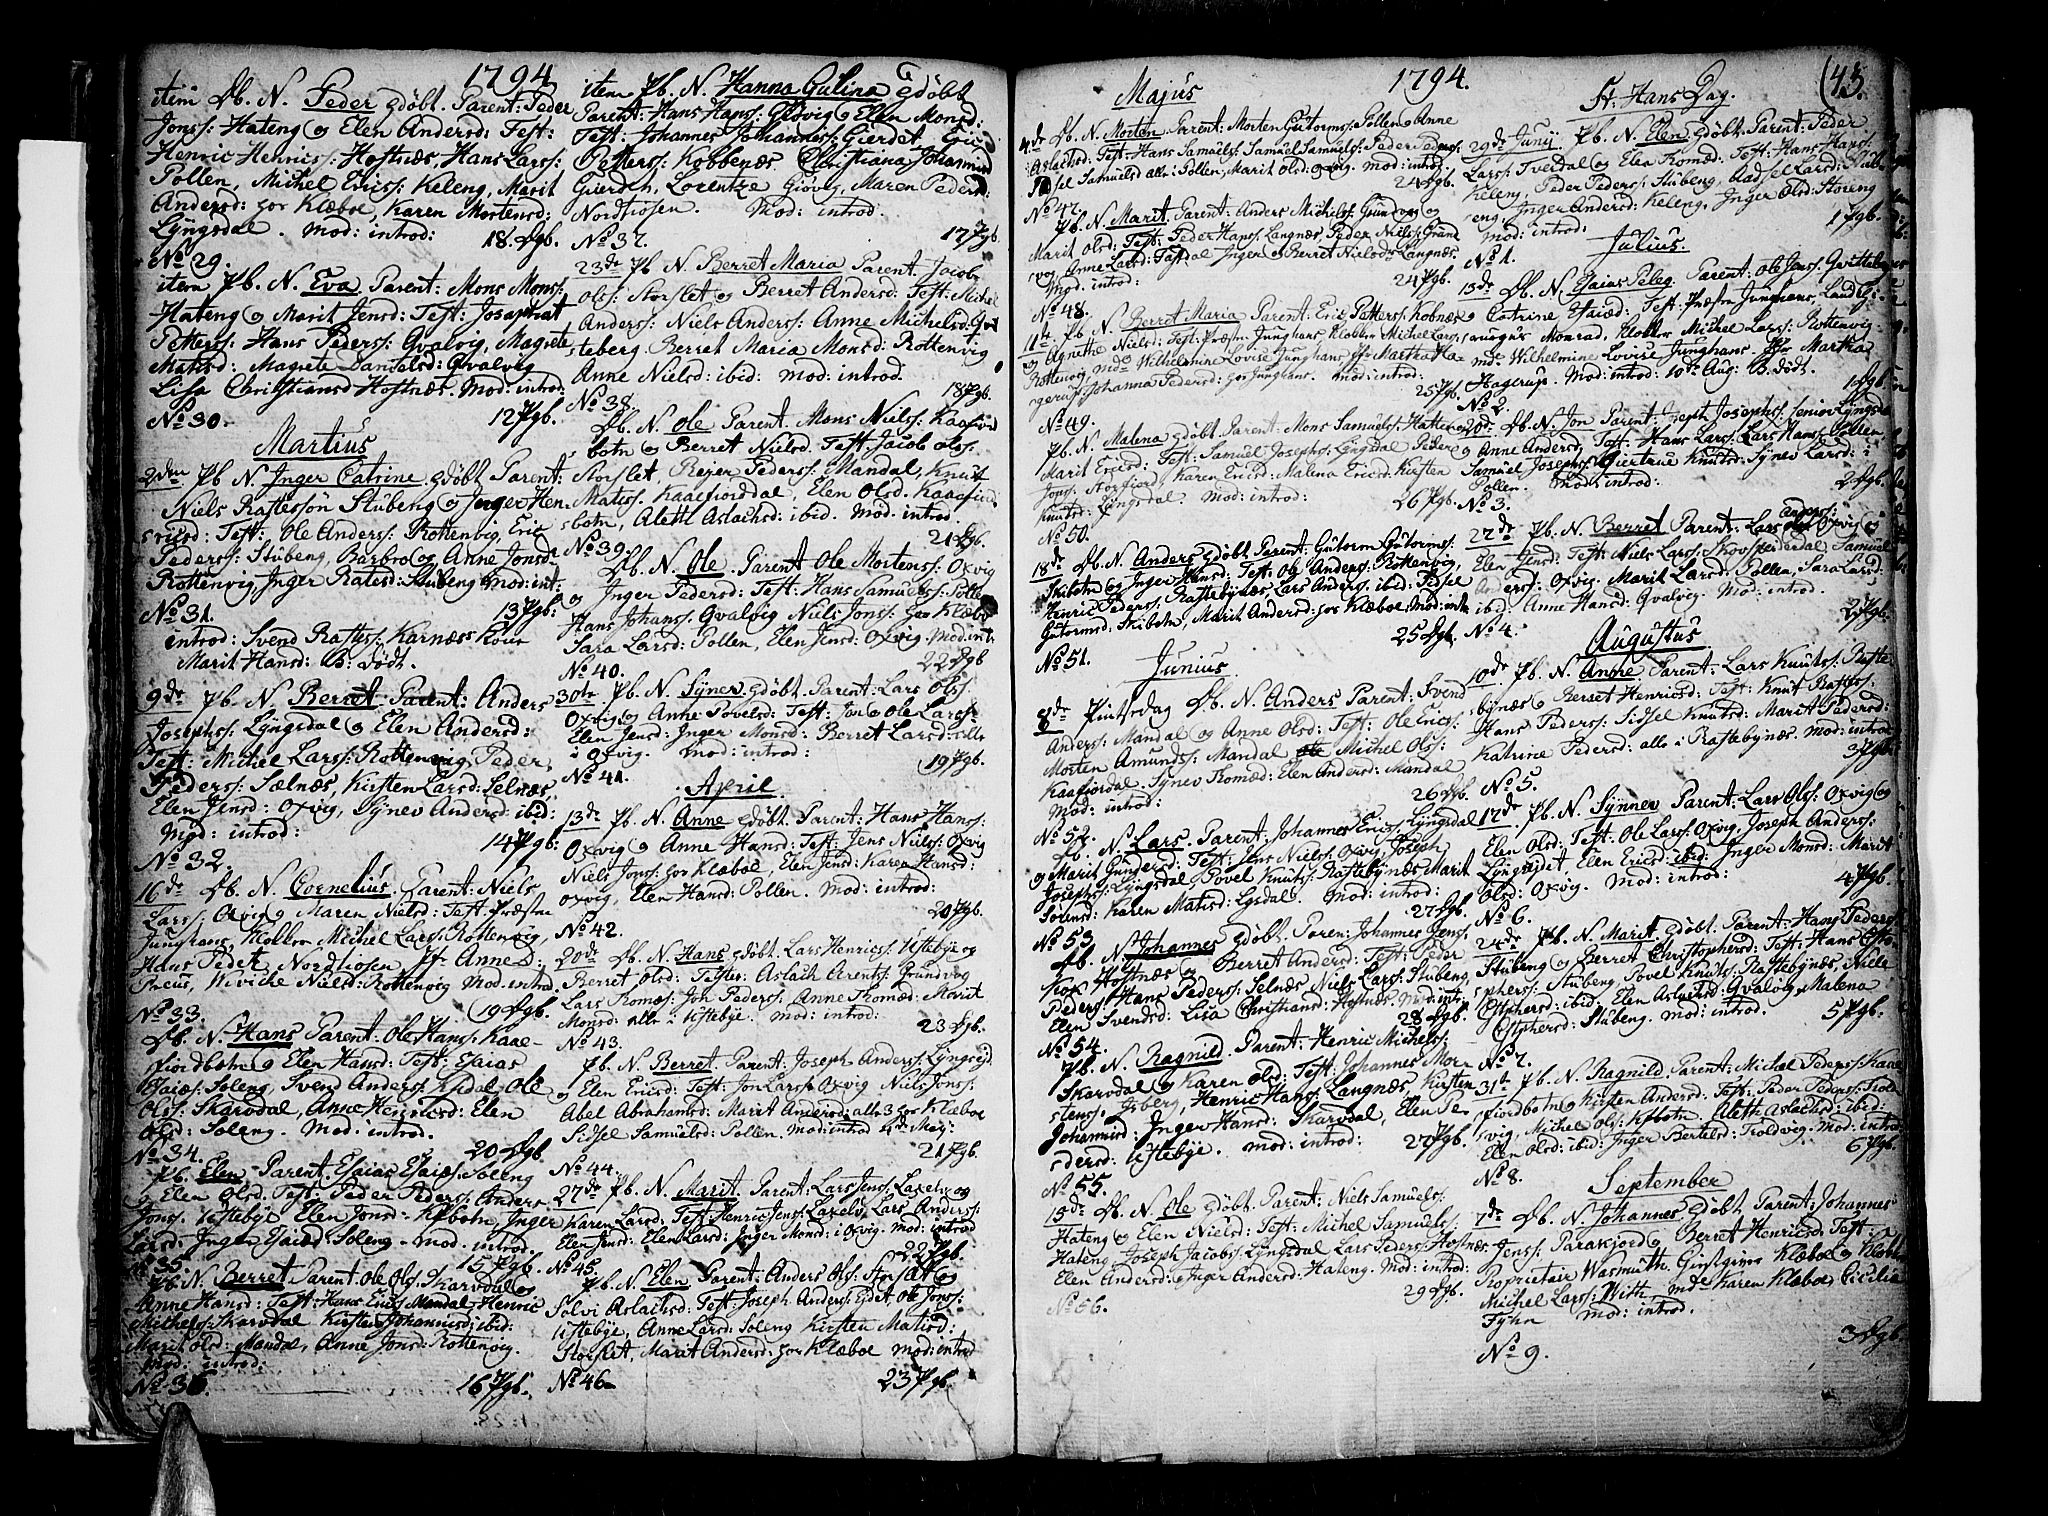 1794
item Db. N. Peder gdöbt. Parent: Peder
Jonss: Hateng og Elen Andersd: Test:
Henric Henrics: Hofnæs Hans Larss:
Pollen, Michel Ericss: Keleng, Marit
Andersd: hos Klæboe, Karen Mortensd:
Lyngsdal. Mod: introd: 18. Dgb.
No 29.
item Pb. N. Eva Parent: Mons Mons:
Hateng og Marit Jensd: Test: Josaphat
Petterss: Hans Pederss: Qvalvig, Magrete
Matisd: Magrete Danielsd: Qvalvig
Lisa Christiansd Hofnæs. Mod: introd:
No 30. 12 Pgb.
Martius
2den Pb N. Inger Catrine gdöbt Parent:
Niels Rastessön Stubeng og Inger Hen-
ricsd: Test: Ole Anderss: Rottenvig, Eric
Pederss: Stubeng, Barbro og Anne Jonsd
Rottenvig, Inger Ratesd: Stubeng Mod: int.
No 31. 13 Pgb.
introd: Svend Rastess: Karnæs Kone
Marit Hansd: B: Födt.
9de Pb. N. Berret Parent: Anders
Josephss: Lyngsdal og Elen Andersd:
Test: Michel Larss: Rottenvig, Peder
Pederss: Sælnæs, Kirsten Larsd: Selnæs,
Elen Jensd: Oxvig, Synev Andersd: ibid:
Mod: introd:
No 32. 14 Pgb:
16de Db. N. Cornelius. Parent: Niels
Larss: Oxvig og Maren Nielsd: Test: Præsten
Junghans, Klokker Michel Larss: Rottenvig,
Hans Peder Nordtiosen Jfr Anne D:
Preus, Wiviche Nielsd: Rottenvig Mod: introd.
No 33. 19 Dgb.
Db. N. Hans Parent: Ole Hans: Kaae-
fiordbotn og Elen Hansd: Test: Esaias
Esaiæs: Soleng, Svend Anders: Kfidal Ole
Olss: Skarvdal, Anne Henricsd: Elen
Olsd: Soleng. Mod: introd.
No 34. 20 Dgb
Pb. Elen Parent: Esaias Esaiæs: Soleng
og Elen Olsd: Test: Peder Peders: Anders
Jons: Uftebye Elen Jonsd: Kfbotn, Inger
Larsd: Inger Esaiæd Soleng. Mod. introd.
No 35. 15 Pgb.
Pb. N. Berret Parent Ole Ols: Skarvdal og
Anne Hansd: Test: Hans Erics Mandal, Henric
Michelss: Skarvdal Kirsten Johannisd: ibid:
Marit Olsd: Mandal, Anne Jonsd: Rottenvig.
Mod: introd:
No 36 16 Pgb.
item Pb. N. Hanna Gulina gdöbt
Parent: Hans Hanss: Giövig og Elen Monsd:
Test: Johannes Johanness: Gierdet, Eric
Petterss: Kobbenæs Christiana Johannisd
Gierdet, Lorentze Giövig, Maren Pedersd:
Nordtiosen. Mod: introd.
No 37. 17 Pgb
23de Pb N. Berret Maria Parent: Jacob
Olss: Storslet og Berret Andersd: Test: Michel
Anderss: Niels Anderss: Anne Michelsd: Qvit-
teberg. Berret Maria Monsd: Rottenvig
Anne Nielsd: ibid: Mod: introd.
No 38. 18 Pgb.
Db. N. Ole Parent: Mons Nielss: Kaafiord
botn og Berret Nielsd: Test: Jacob Olss:
Storslet, Reyer Pederss: Mandal, Knut
Matiss: Kaaefiorddal, Elen Olsd: Kaaefiord
botn, Aleth Aslachsd: ibid. Mod. introd.
No 39. 21 Dgb.
Db. N. Ole. Parent Ole Mortenss: Oxvig
og Inger Pedersd: Test: Hans Samuelss: Pollen
Hans Johans: Qvalvig Niels Jons: hos Klæboe
Sara Larsd: Pollen, Elen Jensd: Oxvig. Mod: int:
No 40. 22 Dgb
30te Pb. N. Synev gdöbt. Parent: Lars Olss:
Oxvig og Anne Povelsd: Test: Jon og Ole Larss:
Elen Jensd: Inger Monsd: Berret Larsd: alle
i Oxvig. Mod: introd:
No 41. 19 Pgb.
April.
13de Pb. N. Anne gdöbt Parent: Hans Hanss:
Oxvig og Anne Hansd: Test: Jens Nielss: Oxvig
Niels Jonss: hos Klæboe, Elen Jensd: Karen Hansd:
Oxvig, Elen Hansd: Pollen. Mod: introd:
No 42. 20 Pgb.
20de Db. N. Hans gdöbt. Lars Henricss: Uftebye og
Berret Olsd: Testes: Aslach Arents: Grundvog
Lars Romos: Jon Peders: Anne Romæd: Marit
Monsd: alle i Uftebye. Mod: introd:
No 43. 23 Dgb.
Pb. N. Berret Parent: Joseph Anders: Lyngseid
og Elen Ericsd: Test: Jon Larss: Oxvig Niels Jonss:
Abel Abrahamsd: Marit Andersd: alle 3 hos Klæboe
Sidsel Samuelsd: Pollen. Mod: introd 4de Maij
No 44. 21 Pgb:
27de Pb. N. Marit. Parent: Lars Jenss: Laxelv og
Karen Larsd: Test: Henric Jenss: Laxelv, Lars Anderss:
Elen Jensd: Elen Larsd: Inger Monsd: i Oxvig. Mod: introd
No 45. 22 Pgb.
Pb. N. Elen Parent: Anders Olss: Storslet og
Solvi Aslachsd: Test: Joseph Anders: Eidet, Ole Jonss:
Uftebye, Anne Larsd: Soleng Kirsten Matisd:
Storslet, Marit Andersd: hos Klæboe Mod: introd
No 46 23 Pgb.
1794.
Majus
4de Db. N. Morten Parent: Morten Gutorms: Pollen og Anne
Aslachsd: Test: Hans Samuelss: Samuel Samuels: Peder Peders:
Sidsel Samuelsd: alle i Pollen, Marit Olsd: Oxvig. Mod: introd:
No 47. 24 Dgb.
Pb. N. Marit. Parent: Anders Michelss: Grundvog og
Marit Olsd: Test: Peder Hans: Langnæs Peder Nielss: Grund
vog, Anne Larsd: Tafdal Inger og Berret Nielsdr Langnæs
Mod: introd:
No 48. 24 Pgb.
11te Pb. N. Berret Maria Parent: Eric Petters: Kobnæs
og Agnethe Nielsd: Test: Præsten Junghans, Klokker Michel Lars:
Rottenvig, Mde Wilhelmine Lovise Junghans Jfr Martha Ha-
gerup, Johanna Pedersd: hos Junghans. Mod: introd:
No 49. 25 Pgb.
Pb. N. Malena gdöbt Parent: Mons Samuelss: Hatten og
Marit Ericsd: Test: Samuel Josephs: Lyngsdal Peder
Jonss: Storfiord, Karen Ericsd: Malena Ericsd: Kirsten
Knutsd: Lyngsdal. Mod: introd:
No 50. 26 Pgb.
18de Db. N. Anders gdöbt Parent: Gutorm Gutorms:
Skibotn og Inger Hansd: Test: Ole Anders: Rottenvig,
Henric Peders: Rastebynæs, Lars Anders: ibid: Sidsel
Gutormsd: Skibotn, Marit Andersd: hos Klæboe, Mod: int.
No 51. 25 Dgb.
Junius
8de Pintsdag Db. N. Anders Parent: Svend
Anderss: Mandal og Anne Olsd: Test: Ole Erics:
Morten Amunds: Mandal Michel Olss:
Kaafiordal. Synev Romæd: Elen Andersd: Mandal
Mod: introd:
No 52. 26 Dgb.
Db. N. Lars. Parent: Johannes Erics: Lyngsdal
og Marit Gundersd: Test: Jens Niels: Oxvig Joseph
Josephs: Lyngsdal, Povel Knuts: Rastebynæs Marit
Sörensd: Karen Matisd: Lysdal. Mod: introd:
No 53. 27 Dgb.
Db. N. Johannes gdöbt. Paren: Johannes Jens:
Kok Hofnæs og Berret Andersd: Test: Peder
Peders: Hans Peders: Selnæs, Niels Lars: Stubeng,
Elen Svendsd: Lisa Christiansd: Hofnæs. Mod: int:
No 54. 28 Dgb.
Pb. N. Ragnild. Parent: Henric Michels:
Skarvdal og Karen Olsd: Test: Johannes Mor-
stens: Isberg, Henric Hans: Langnæs Kirsten
Johannisd: Inger Hansd: Skarvdal, Elen Pe-
dersd: Uftebye. Mod: introd:
No 55. 27 Pgb.
15de Db. N. Ole gdöbt Parent: Niels Samuelss:
Hateng og Elen Nielsd: Test: Michel Samuelss:
Hateng, Joseph Jacobs: Lyngsdal Lars Peders: Hofnæs
Elen Andersd: Inger Andersd: Hateng. Mod: introd:
No 56. 29 Dgb.
St. Hans Dag. (43.
29de Junij Pb. N. Elen gdöbt Parent: Peder
Larss: Tverdal og Elen Romæd: Test: Hans Hans:
Keleng, Peder Peders: Stubeng, Aadsel Larsd: Stub-
eng. Inger Andersd: Keleng, Inger Olsd: Storeng
Mod: introd:
No 1. 1 Pgb.
Julius.
13de Db. N. Esaias Peleg. Parent: Ole Jens: Qvitteberg
og Catrine Esaiæd: Test: Præsten Junghans, Land Chi-
rurgus Monrad, Klokker Michel Larss: Rottenvig
Mde Wilhelmine Lovise Junghans Jfr Martha
Hagerup. Mod: introd: 10de Aug: B: födt.
No 2. 1 Dgb.
20de Db. N. Jon Parent: Joseph Josephs: senior Lyngsdal
og Anne Andersd: Test: Hans Lars: Lars Hans: Pollen
Samuel Josephs: Giertrue Knutsd: Synev Larsd: i
Pollen. Mod: introd:
No 3. 2 Dgb.
27de Pb. N. Berret Parent: Lars Anders: Oxvig og
Elen Jensd: Test: Niels Larss: Skovfierdal, Samuel
Anderss: Oxvig. Marit Larsd: Pollen, Sara Larsd:
ibid: Anne Hansd: Qvalvig. Mod: introd.
No 4. 2 Pgb.
Augustus
10de Pb. N. Anne Parent: Lars Knuts: Raste
bynæs og Berret Henricsd: Test: Knut Rastess:
Hans Peders: Sidsel Knutsd: Marit Pedersd:
Katrine Pedersd: alle i Rastebynæs. Mod: introd
No 5. 3 Pgb.
17de Pb. N. Synnev Parent: Lars Olss: Oxvig og
Elen Olsd: Test: Ole Lars: Oxvig. Joseph Anders:
Lyngsejdet, Elen Ericsd: ibid: Inger Monsd: Marit
Olsd: Oxvig. Mod: introd:
No 6. 4 Pgb.
24de Pb. N. Marit gdöbt. Parent: Hans Peders:
Stubeng og Berret Christophersd: Test: Hans Csto-
phers: Stubeng, Povel Knuts: Rastebynæs, Niels
Cstphers: ibid: Elen Aslachsd: Qvalvig, Malena
Cstphersd: Stubeng. Mod: introd.
No 7. 5 Pgb.
31te Pb. N. Ragnild Parent: Michel Peders: Kaae
fiordbotn og Kirsten Andersd: Test: Peder Peders: Trold
vig, Michel Ols: Kfbotn, Aleth Aslachsd: ibid:
Elen Olsd: ibid: Inger Bertelsd: Troldvig. Mod: introd
No 8. 6 Pgb.
September
7de Db. N. Johannes gdöbt Parent: Johannes
Jenss: Parakjord og Berret Henricsd: Test:
Proprietair Wasmuth. Giestgiver Klæboe og Klokk:
Michel Lars: With Mde Karen Klæboe, Cicilia
Fyhn Mod: introd.
No 9. 3 Dgb.